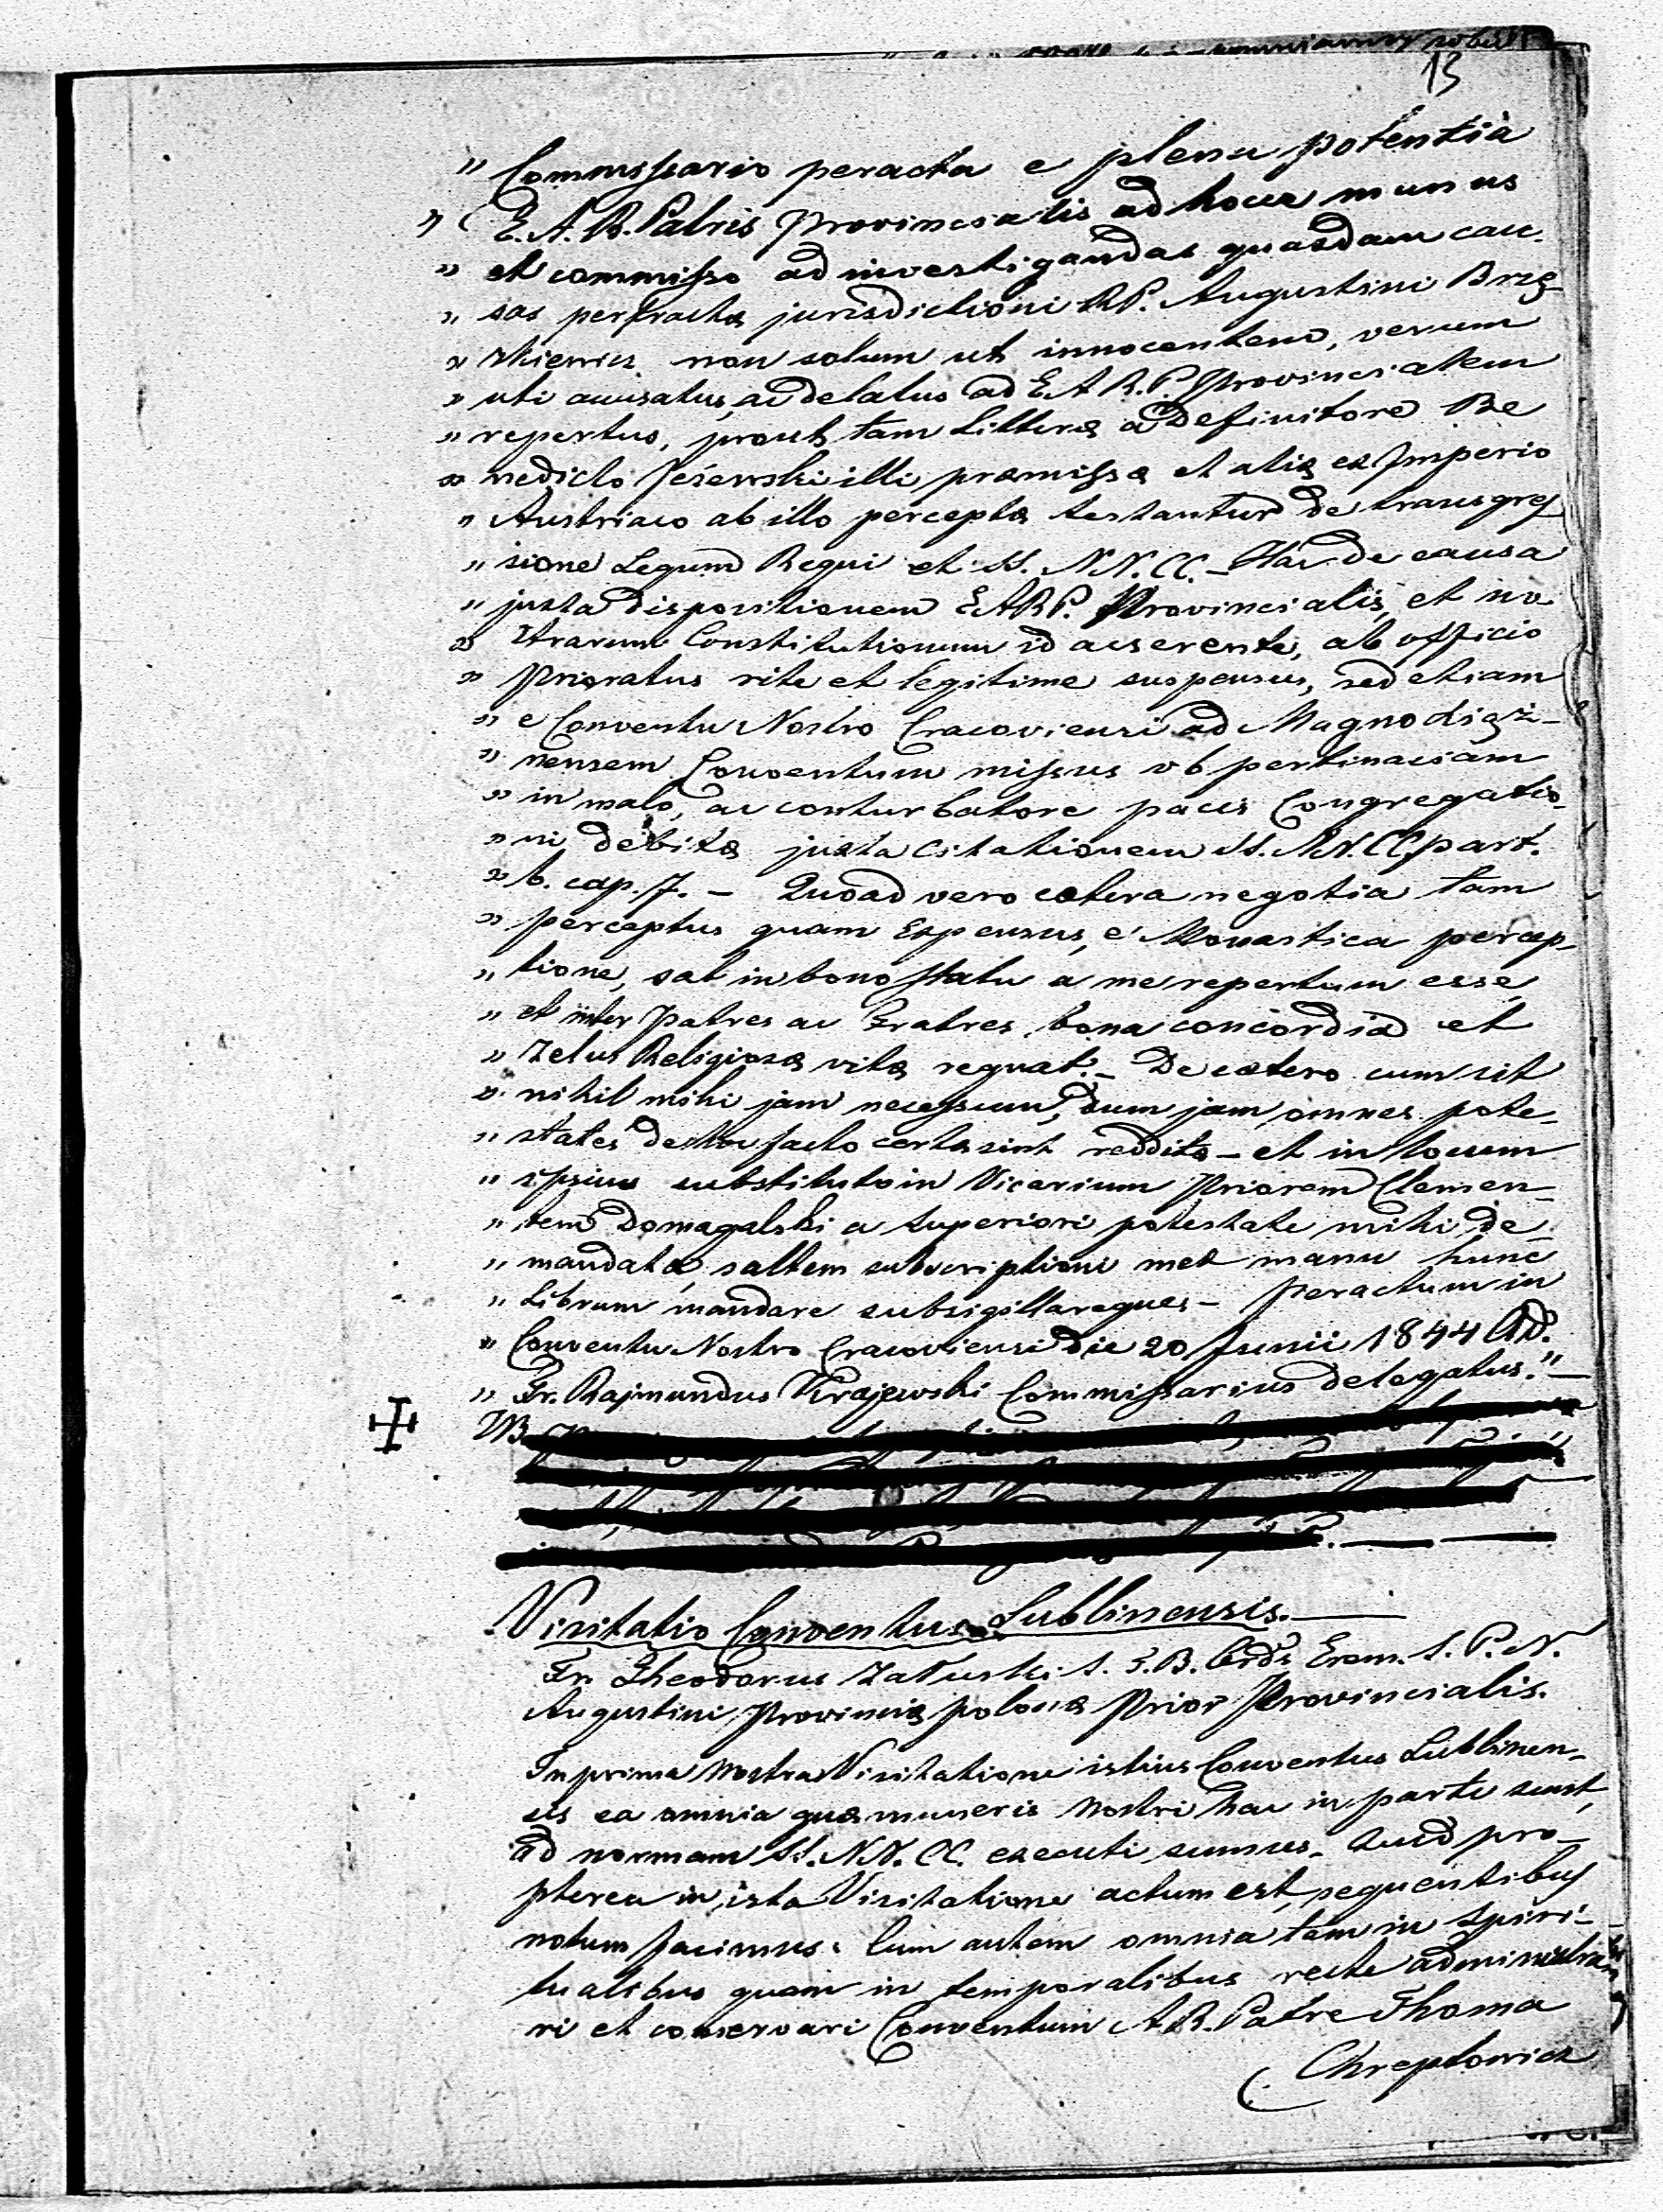 13
" Commissario peracta e plena potentia
" E. A. R. Patris Provincialis ad hocce munus
" et commisso ad investigandas quasdam cau-
" sas pertractæ jurisdictioni RP. Augustini Brzę-
" kiewicz non solum ut innocentem, verum
" uti accusatus, ac delatus ad E. A R. P. Provincialem
" repertus, prout tam Litteræ a Definitore Be
" nedicto Jeżewski illi præmissæ et aliæ ex Imperio
" Austriaco ab illo perceptæ testantur de transgres
" sione Legum Regni et SS. NN. CC. – Hac de causa
" juxta dispositionem EARP. Provincialis, et no
" strarum Constitutionum id asserente, ab officio
" Prioratus rite et legitime suspensus, sed etiam
" e Conventu Nostro Cracoviensi ad Magno Książ-
" nensem Conventum missus ob pertinaciam
" in malo, ac conturbatore pacis Congregatio-
" ni debitæ juxta citationem SS. NN. CC. part.
" 6. cap. 7. – Quoad vero cætera negotia tam
" perceptus quam Expensus, e Monastica percep-
" tione, sat in bono statu a me repertum esse
" et inter Patres ac Fratres, bona concordia et
" Zelus Religiosæ vitæ regnat. – De cætero cum sit
" nihil mihi jam necessum, dum jam omnes pote-
" states de hoc facto certæ sint redditæ – et in locum
" ipsius substituto in Vicarium Priorem Clemen-
" tem Domagalski a superiori potestate mihi de-
" mandata, saltem subscriptioni met manu hunc
" Librum mandare subsigillareque – Peractum in
" Conventu Nostro Cracoviensi die 20 Junii 1844 AD.
" Fr. Rajmundus Krajewski Commissarius delegatus." –
NB.
Visitatio Conventus Lublinensis. –
Fr. Theodorus Załuski S. T. B. Ord: Erem. S. P. N.
Augustini Provinciæ polonæ Prior Provincialis.
In prima Nostra Visitatione istius Conventus Lublinen-
sis ea omnia quæ muneris Nostri hac in parte sunt,
ad normam SS. NN. CC. executi sumus. Quid pro-
pterea in ista Visitatione actum est, sequentibus
notum facimus. Cum autem omnia tam in Spiri-
tualibus quam in temporalibus recte administra
ri et conservari Conventum A R. Patre Thoma
Chreptowicz